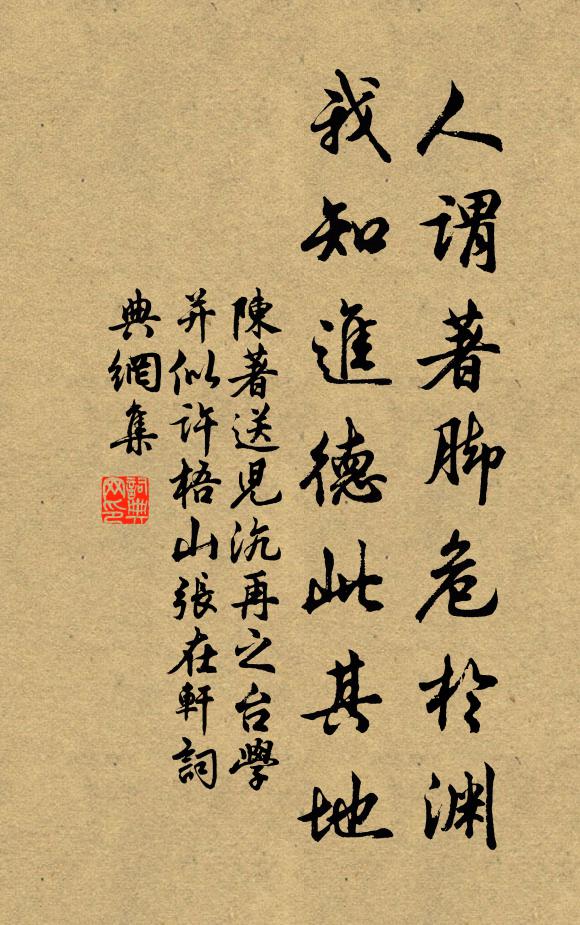 人謂著脚危於淵
我知進德此其地
陳著送兒沆再之台學
并似許梧山張在軒詞
典網集
詞典網印